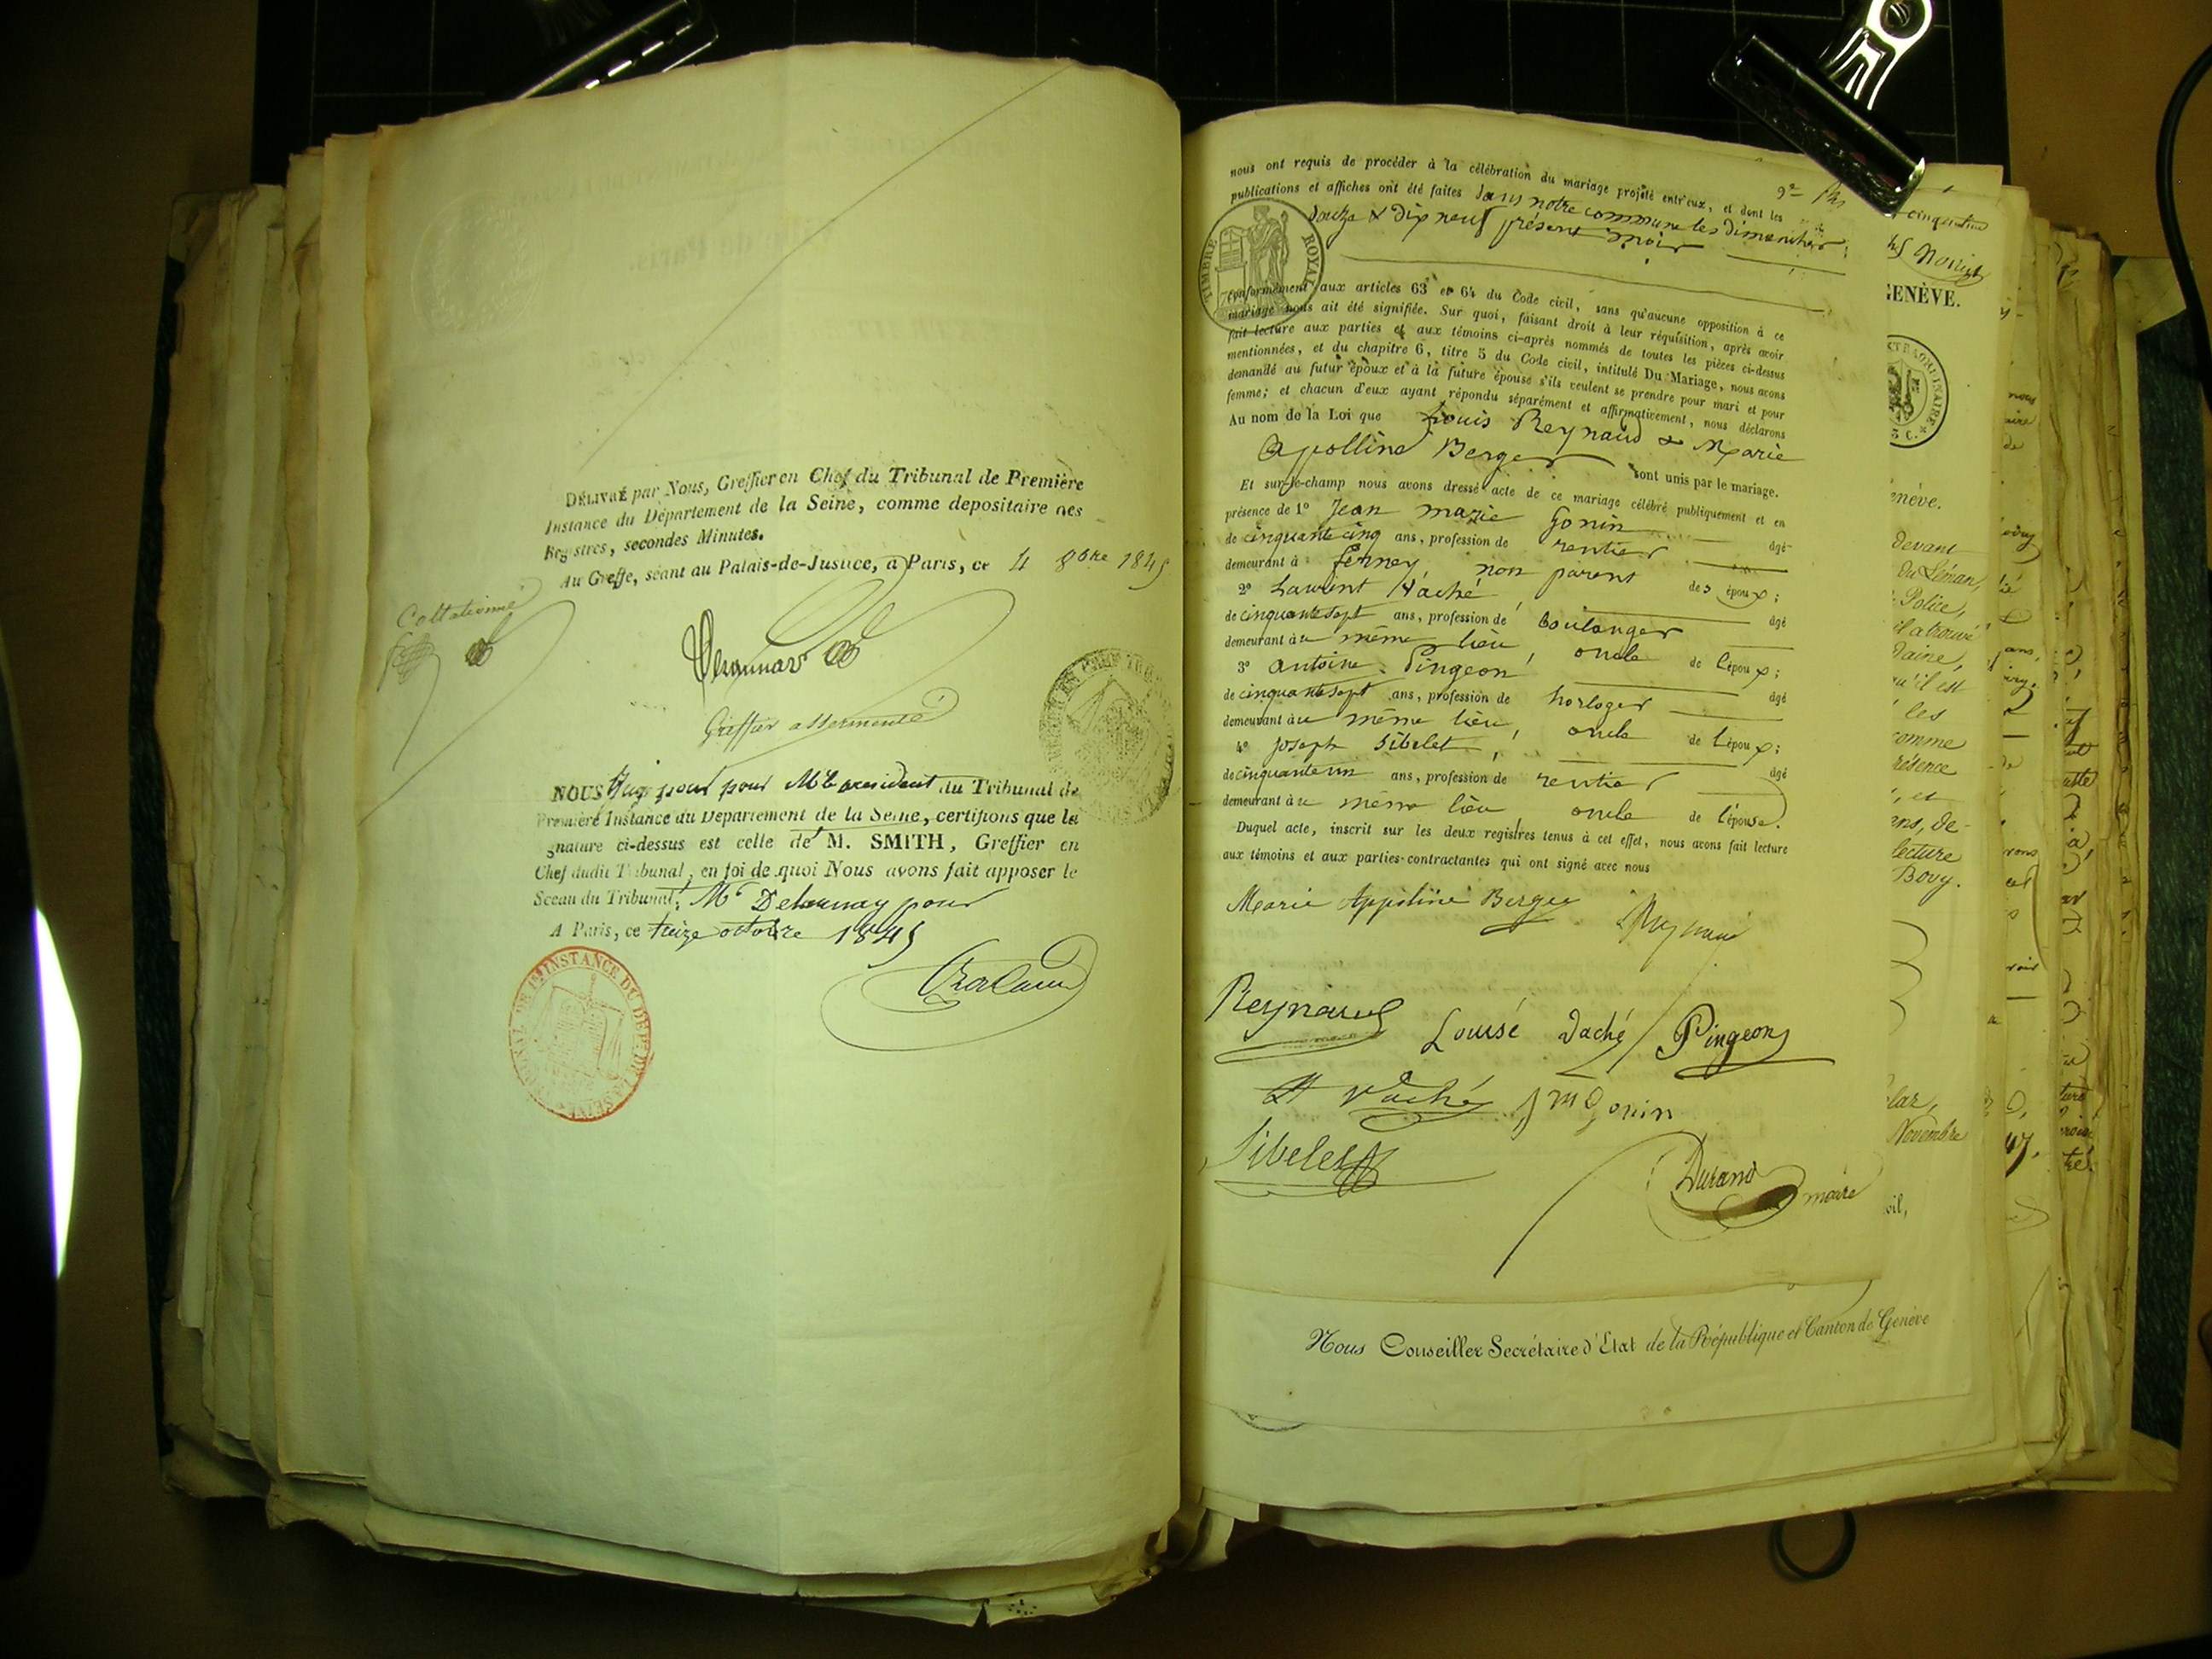 DÉLIVRÉ par Nous, Greffier en Chef du Tribunal de Première
Instance du Département de la Seine, comme depositaire des
Registres, secondes Minutes.
Au Greffe, séant au Palais-de-Justice, à Paris, ce 4 8bre 1845
Collationné
Greffier assermenté
NOUS Juge pour M le president du Tribunal de
Première Instance du Département de la Seine, certifions que la
gnature ci-dessus est celle de M. SMITH, Greffier en
Chef dudit Tribunal, en foi de quoi Nous avons fait apposer le
Sceau du Tribunal. Mr Delaunay pour
A Paris, ce treize octobre 1845
TRIBUNAL DE 1re INSTANCE DU DEPt DE LA SEINE
nous ont requis de procéder à la célébration du mariage projeté entr'eux, et dont les
publications et affiches ont été faites dans notre commune les dimanches
douze & dix neuf présent mois
TIMBRE ROYAL
conformément aux articles 63 et 64 du Code civil, sans qu'aucune opposition à ce
mariage nous ait été signifiée. Sur quoi, faisant droit à leur réquisition, après avoir
fait lecture aux parties et aux témoins ci-après nommés de toutes les pièces ci-dessus
mentionnées, et du chapitre 6, titre 5 du Code civil, intitulé Du Mariage, nous avons
demandé au futur époux et à la future épouse s'ils veulent se prendre pour mari et pour
femme; et chacun d'eux ayant répondu séparément et affirmativement, nous déclarons
Au nom de la Loi que Louis Reynaud & Marie
Apolline Berger sont unis par le mariage.
Et sur-le-champ nous avons dressé acte de ce mariage célébré publiquement et en
présence de 1° Jean marie Gonin âgé
de cinquante cinq ans, profession de rentier
demeurant à Ferney, non parent des époux;
2° Laurent Vaché âgé
de cinquante sept ans, profession de boulanger
demeurant au même lieu, oncle de l'époux;
3° Antoine Pingeon âgé
de cinquante sept ans, profession de horloger
demeurant au même lieu, oncle de l'époux;
4° Joseph Sibelet, âgé
de cinquante un ans, profession de rentier
demeurant au même lieu oncle de l'épouse.
Duquel acte, inscrit sur les deux registres tenus à cet effet, nous avons fait lecture
aux témoins et aux parties contractantes qui ont signé avec nous
Marie Appoline Berger
Reynaud Louise Vaché Pingeon
Vaché J m Gonin
Sibelet
Durand maire
Nous Conseiller Secrétaire d'Etat de la République et Canton de Genève
GENÈVE.
enève.
devant
du Léman,
Police,
il a trouvé
qu'il est
les
comme
résence
, et
ens, de-
lecture
Bovy.
Novembre